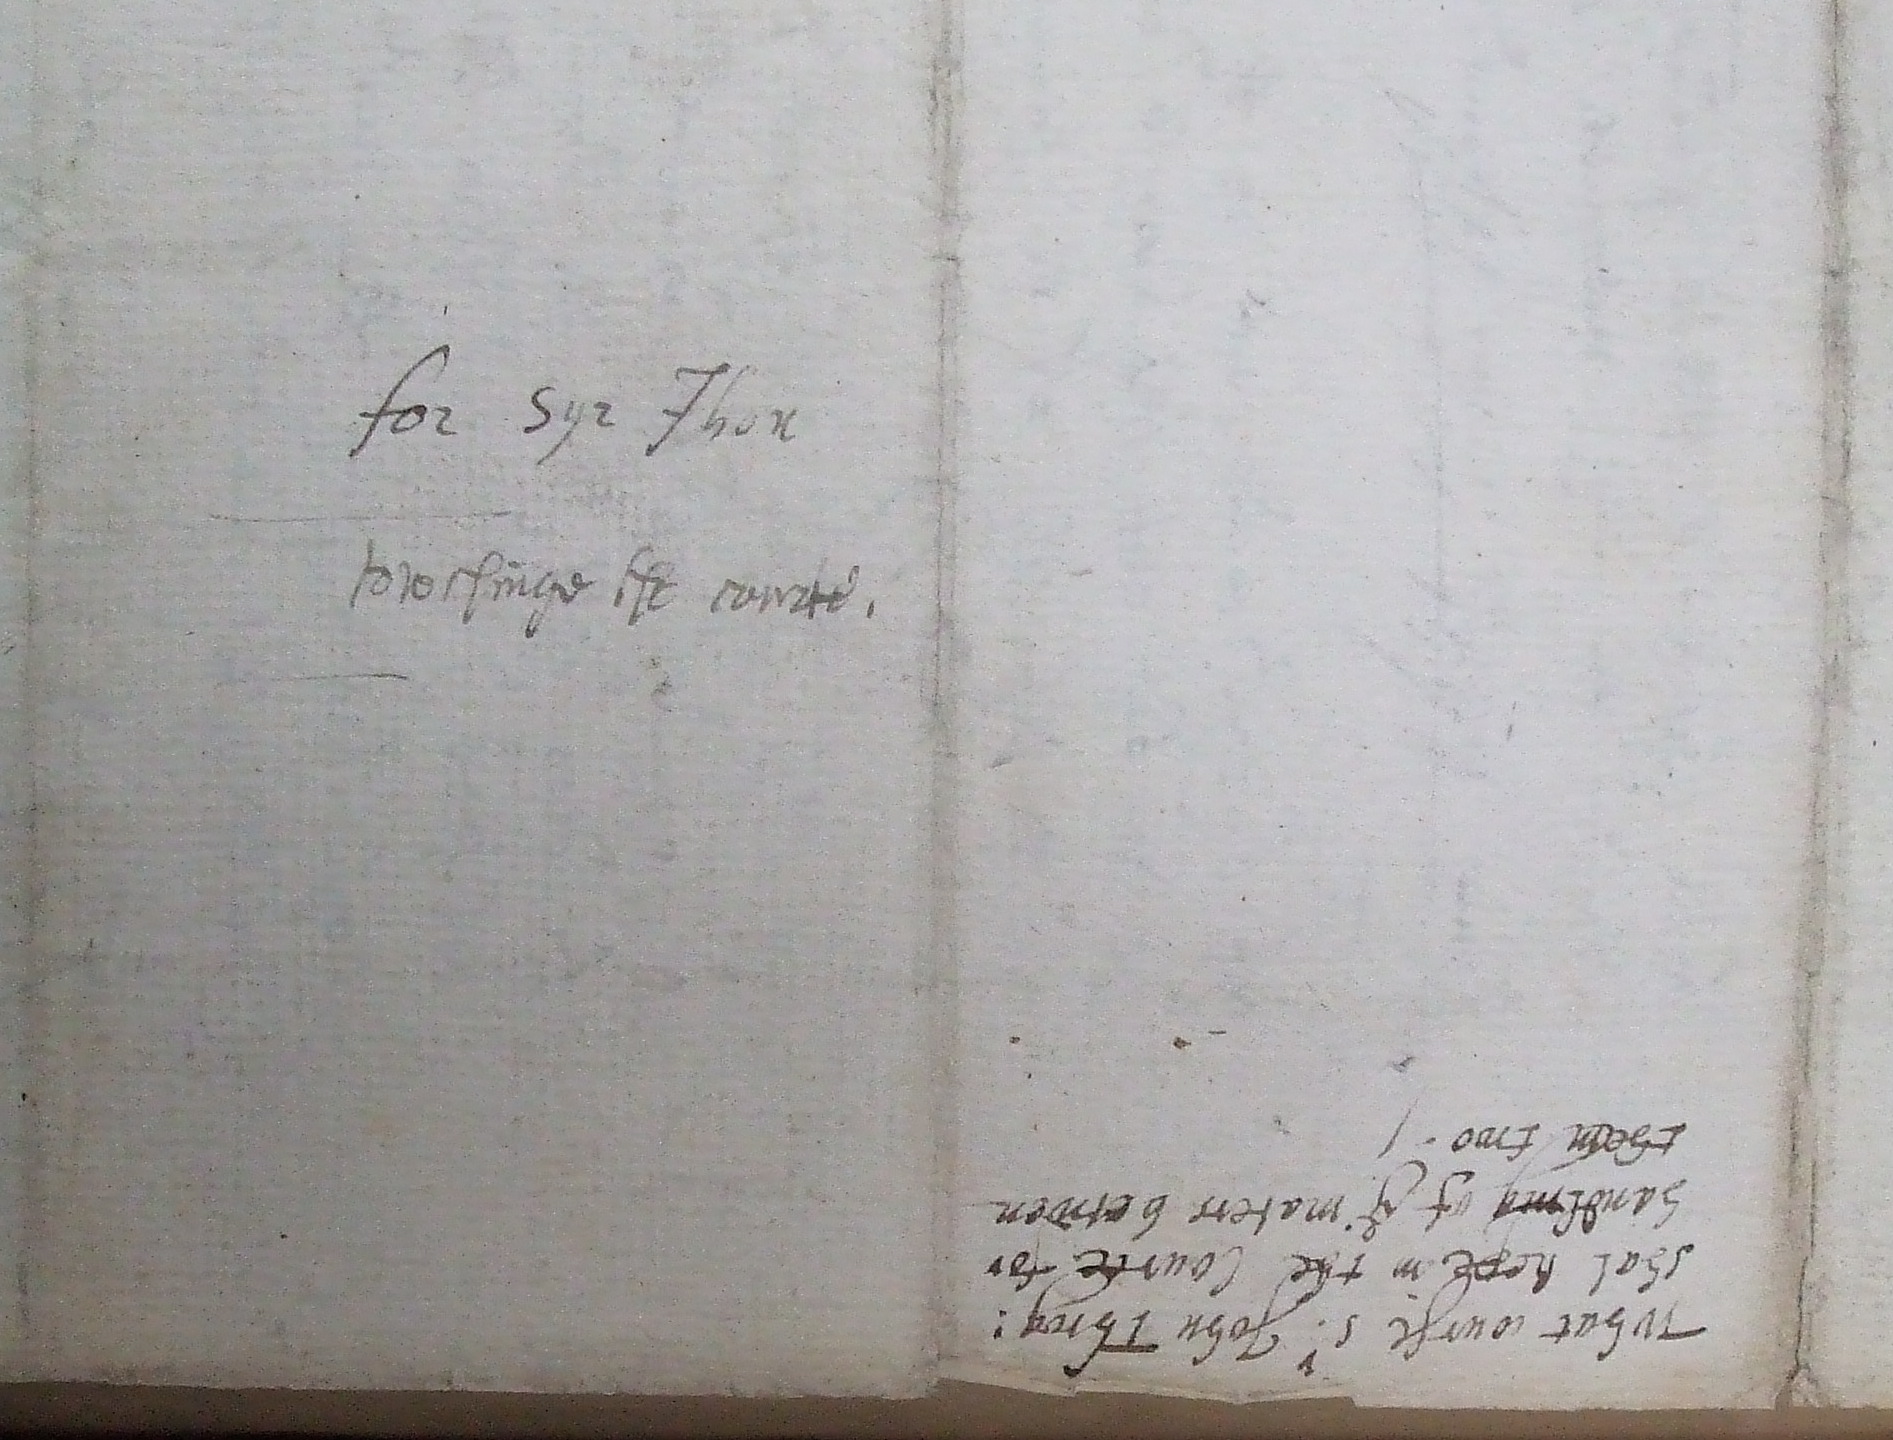 for Syr Jhon
towchinge the courte.
What course Sr John Thiñ:
shal kepe in the Courte for
handling of ye maters betwen
them two ./